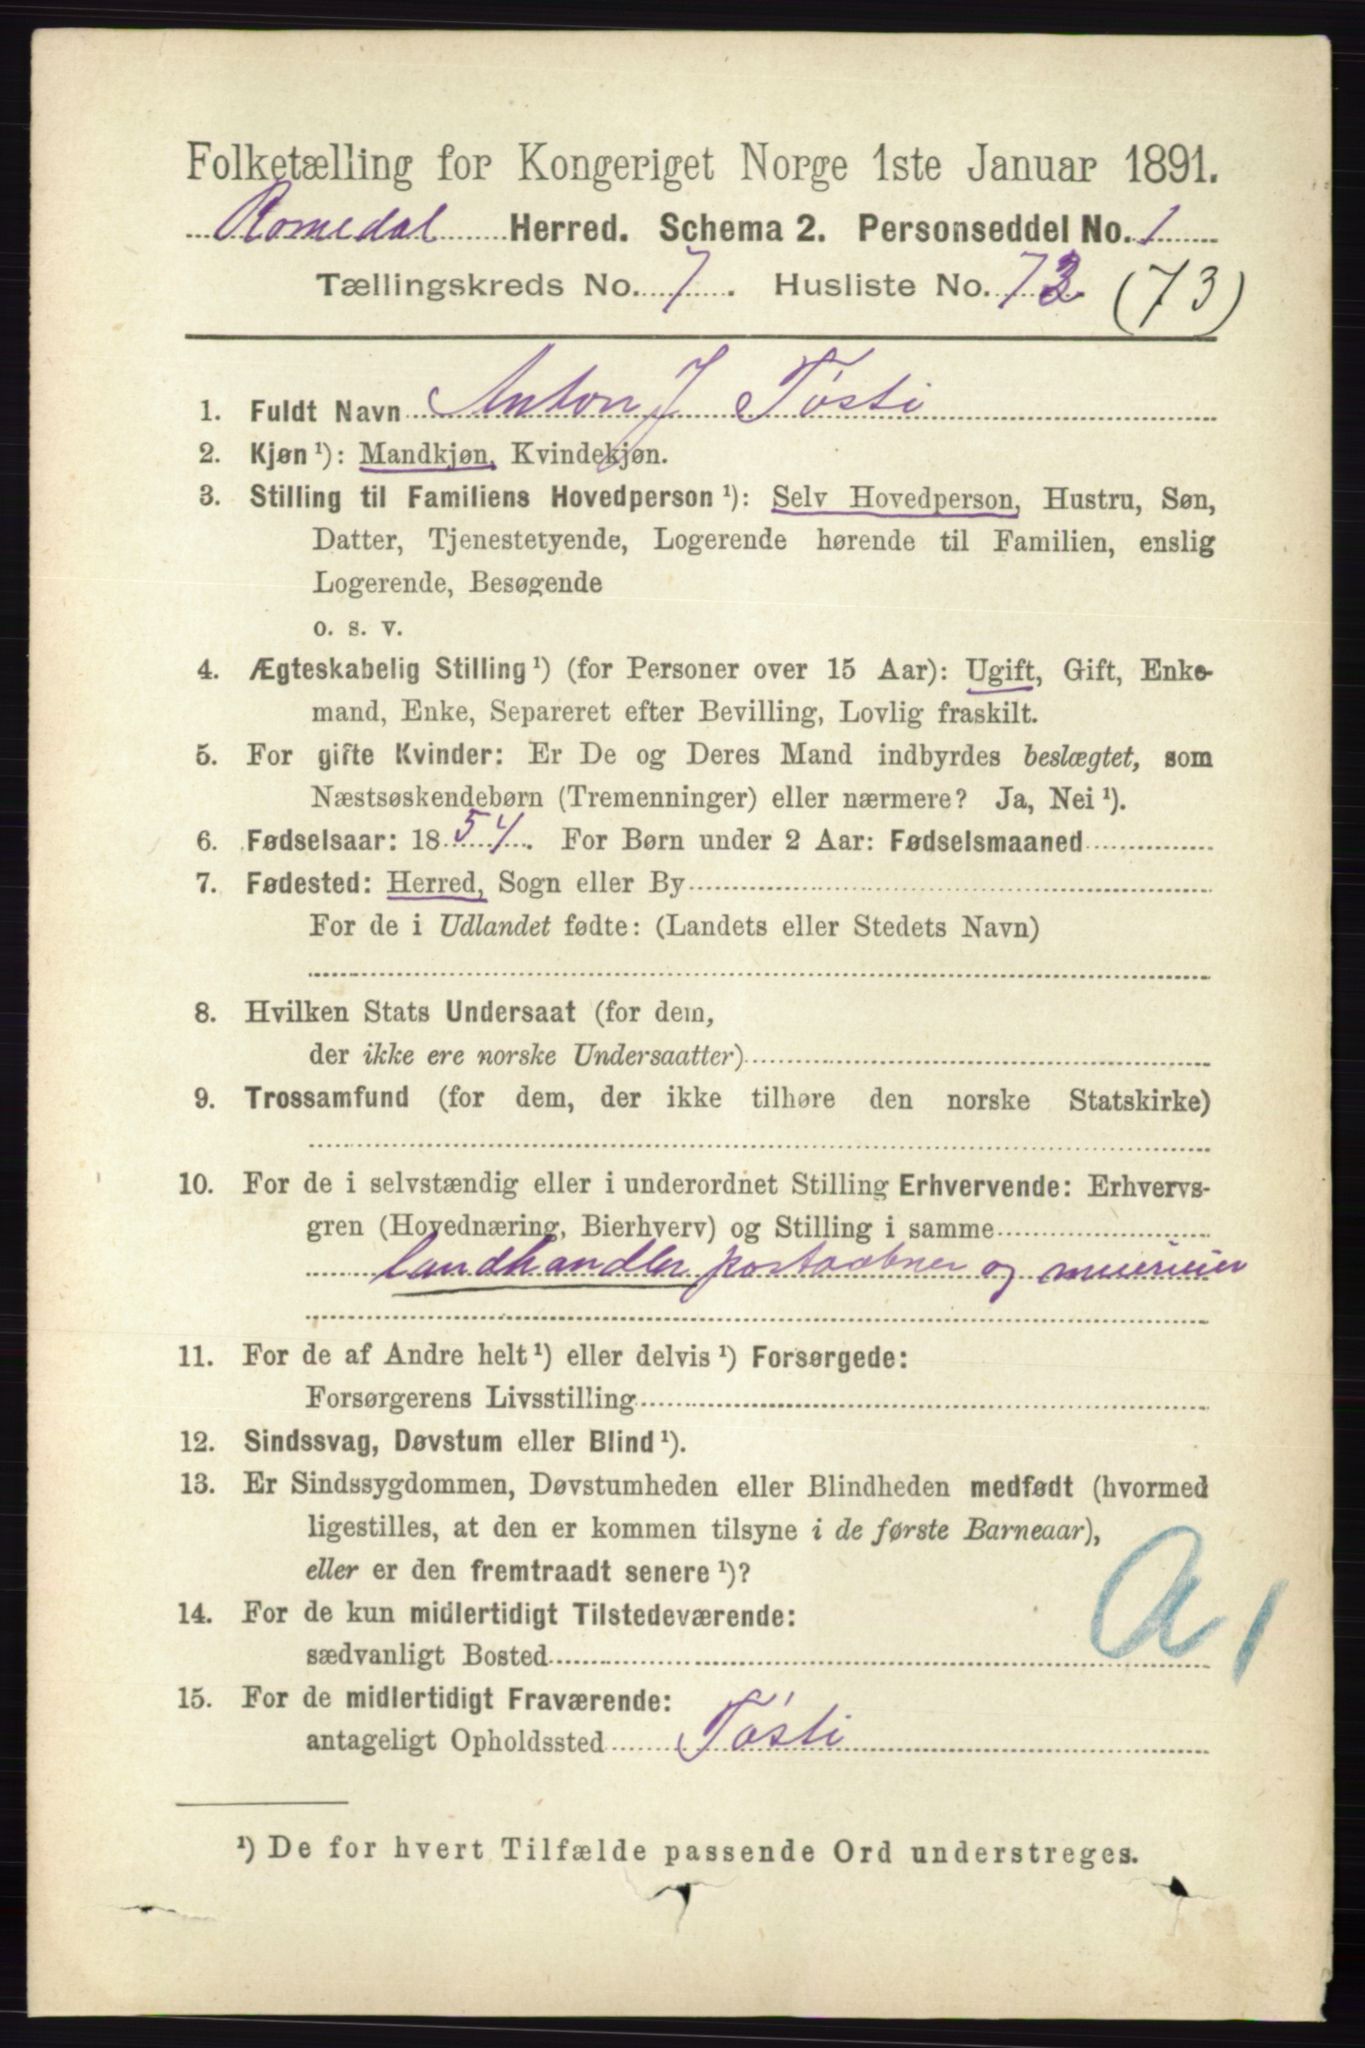 Folketælling for Kongeriget Norge 1ste Januar 1891.
Romedal Herred. Schema 2. Personseddel No. 1
Tællingskreds No. 7. Husliste No. 73 (73)
1. Fuldt Navn Anton J Tøsti
2. Kjøn ¹): Mandkjøn, Kvindekjøn.
3. Stilling til Familiens Hovedperson ¹): Selv Hovedperson, Hustru, Søn,
Datter, Tjenestetyende, Logerende hørende til Familien, enslig
Logerende, Besøgende
o. s. v.
4. Ægteskabelig Stilling ¹) (for Personer over 15 Aar): Ugift, Gift, Enke-
mand, Enke, Separeret efter Bevilling, Lovlig fraskilt.
5. For gifte Kvinder: Er De og Deres Mand indbyrdes beslægtet, som
Næstsøskendebørn (Tremenninger) eller nærmere? Ja, Nei ¹).
6. Fødselsaar: 1854. For Børn under 2 Aar: Fødselsmaaned
7. Fødested: Herred, Sogn eller By
For de i Udlandet fødte: (Landets eller Stedets Navn)
8. Hvilken Stats Undersaat (for dem,
der ikke ere norske Undersaatter)
9. Trossamfund (for dem, der ikke tilhøre den norske Statskirke)
10. For de i selvstændig eller i underordnet Stilling Erhvervende: Erhvervs-
gren (Hovednæring, Bierhverv) og Stilling i samme
landhandler postaabner og meierieier
11. For de af Andre helt ¹) eller delvis ¹) Forsørgede:
Forsørgerens Livsstilling
12. Sindssvag, Døvstum eller Blind ¹).
13. Er Sindssygdommen, Døvstumheden eller Blindheden medfødt (hvormed
ligestilles, at den er kommen tilsyne i de første Barneaar),
eller er den fremtraadt senere ¹)?
14. For de kun midlertidigt Tilstedeværende:
sædvanligt Bosted
A 1
15. For de midlertidigt Fraværende:
antageligt Opholdssted Tøsti
¹) De for hvert Tilfælde passende Ord understreges.